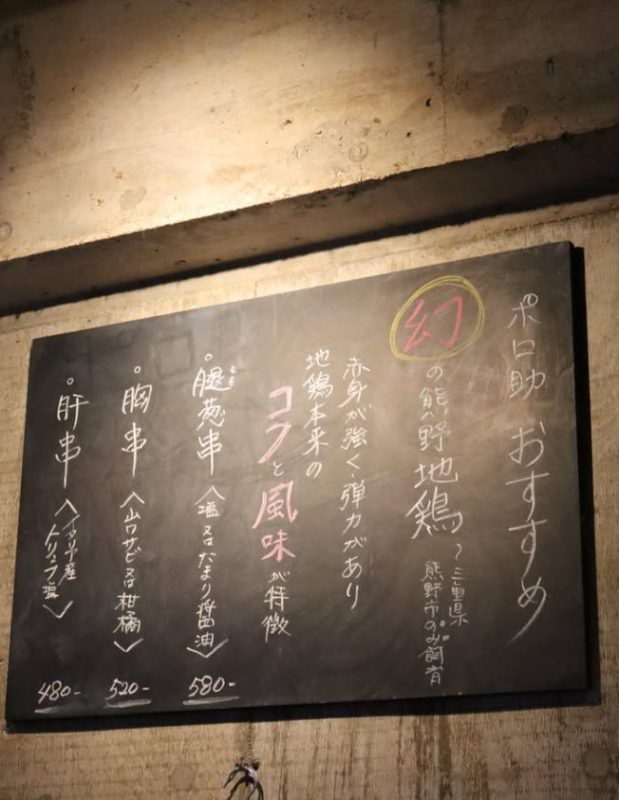 ポロ助 おすすめ
幻の熊野地鶏 〜三重県
熊野市のみ飼育
赤身が強く弾力があり
地鶏本来の
コクと風味が特徴
○腿葱串 〈塩又はたまり醤油〉 580-
○胸串 〈山ワサビ又は柑橘〉 520-
○肝串 〈イタリア産
トリュフ塩〉 480-